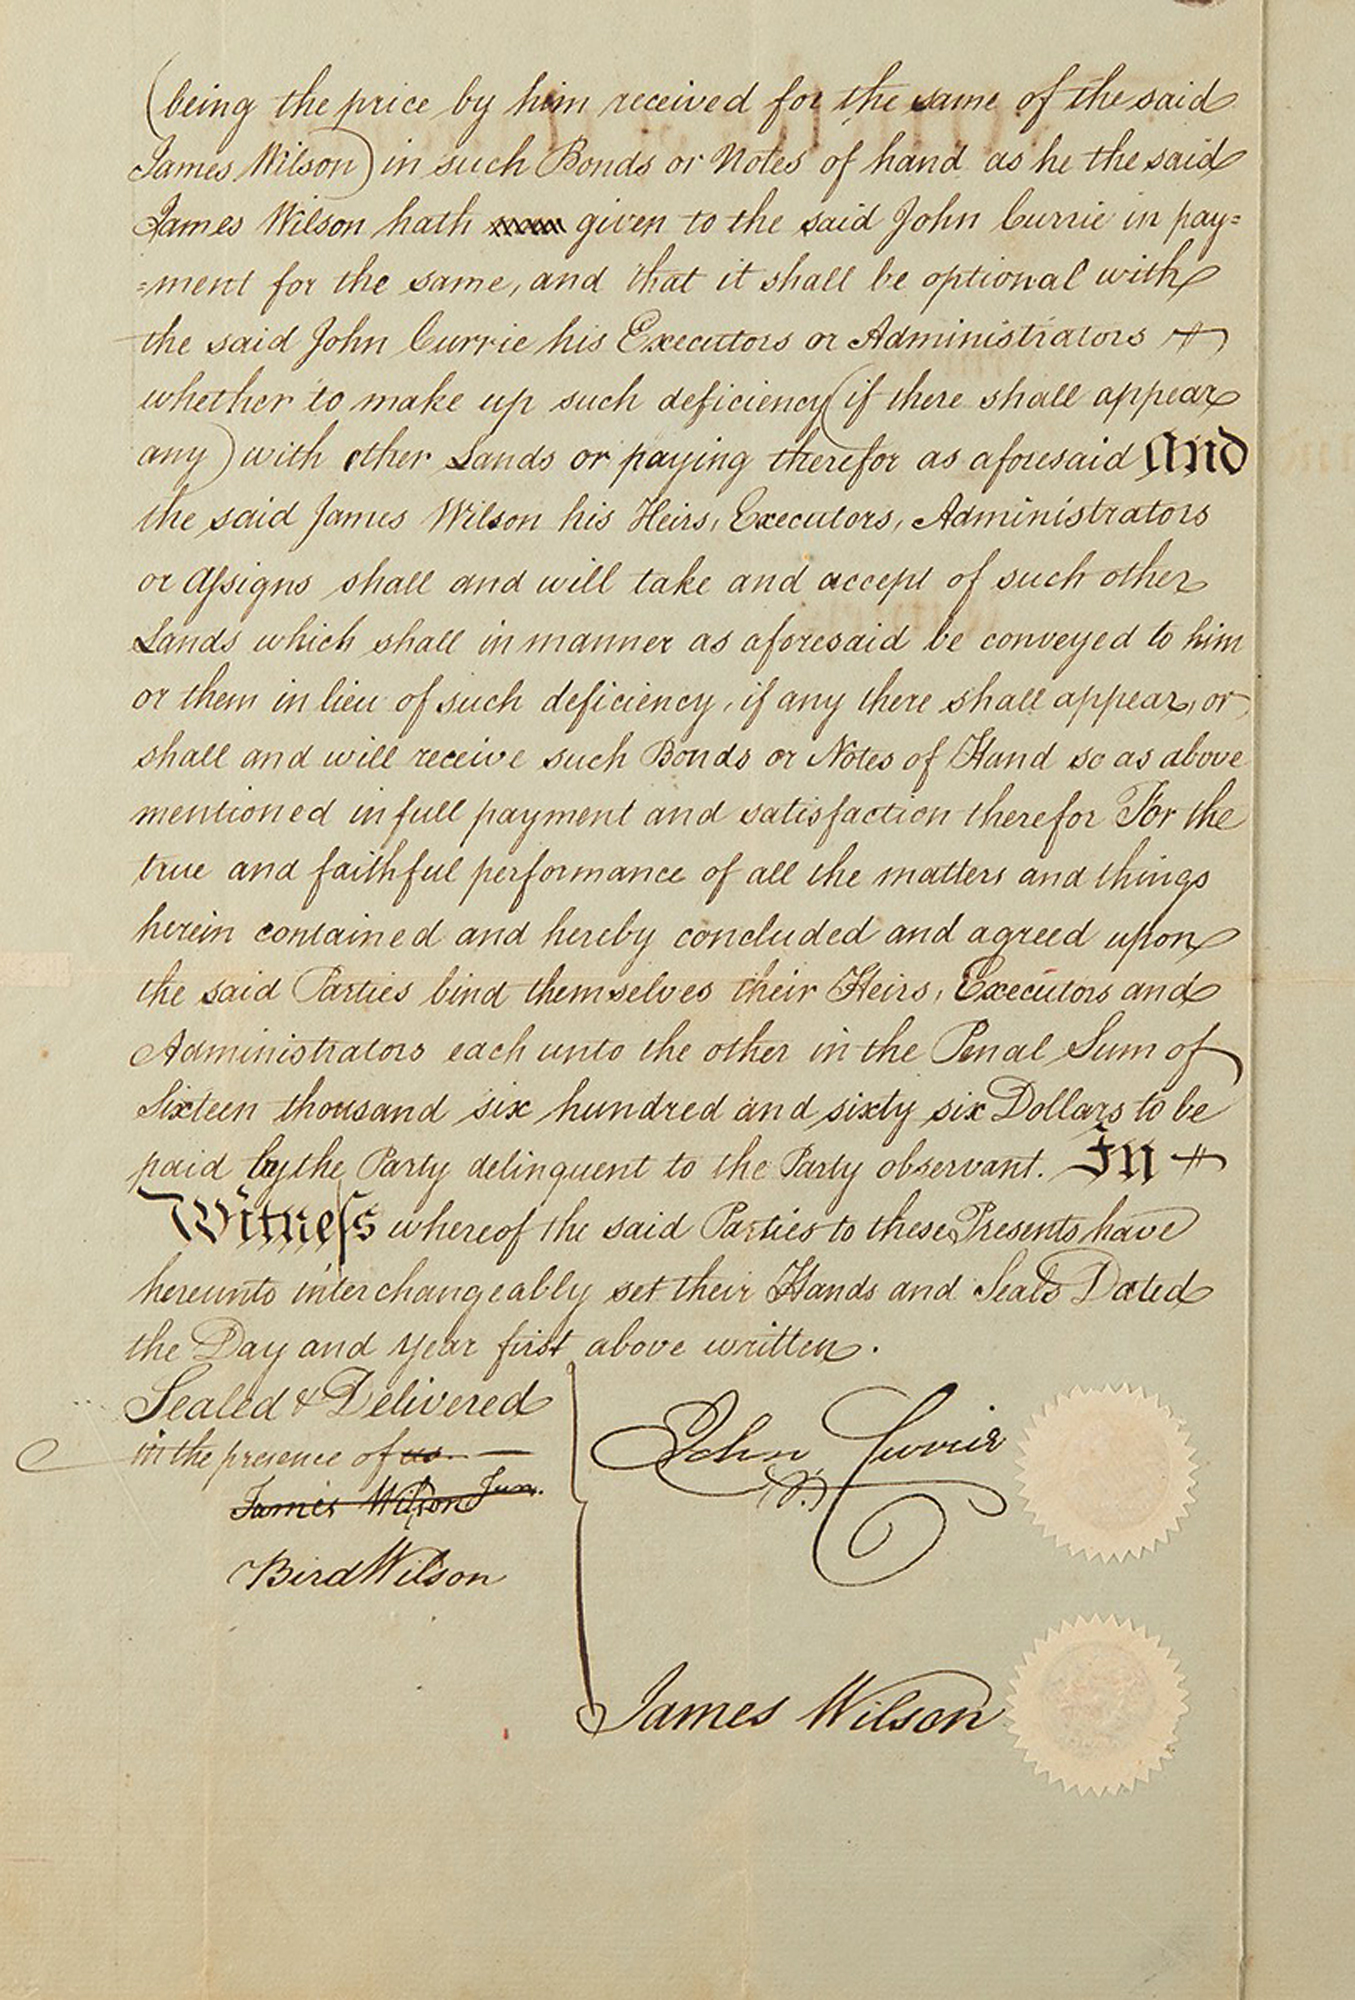 (being the price by him received for the same of the said
James Wilson) in such Bonds or Notes of hand as he the said
James Wilson hath given to the said John Currie in pay=
=ment for the same, and that it shall be optional with
the said John Currie his Executors or Administrators
whether to make up such deficiency (if there shall appear
any) with other Lands or paying therefor as aforesaid And
the said James Wilson his Heirs, Executors, Administrators
or Assigns shall and will take and accept of such other
Lands which shall in manner as aforesaid be conveyed to him
or them in lieu of such deficiency, if any there shall appear, or
shall and will receive such Bonds or Notes of Hand so as above
mentioned in full payment and satisfaction therefor For the
true and faithful performance of all the matters and things
herein contained and hereby concluded and agreed upon
the said Parties bind themselves their Heirs, Executors and
Administrators each unto the other in the Penal Sum of
Sixteen thousand six hundred and sixty six Dollars to be
paid by the Party delinquent to the Party observant. In
Witness whereof the said Parties to these Presents have
hereunto interchangeably set their Hands and Seals Dated
the Day and Year first above written.
Sealed & Delivered
in the presence of us
James Wilson Jun.
Bird Wilson
John Currie
James Wilson